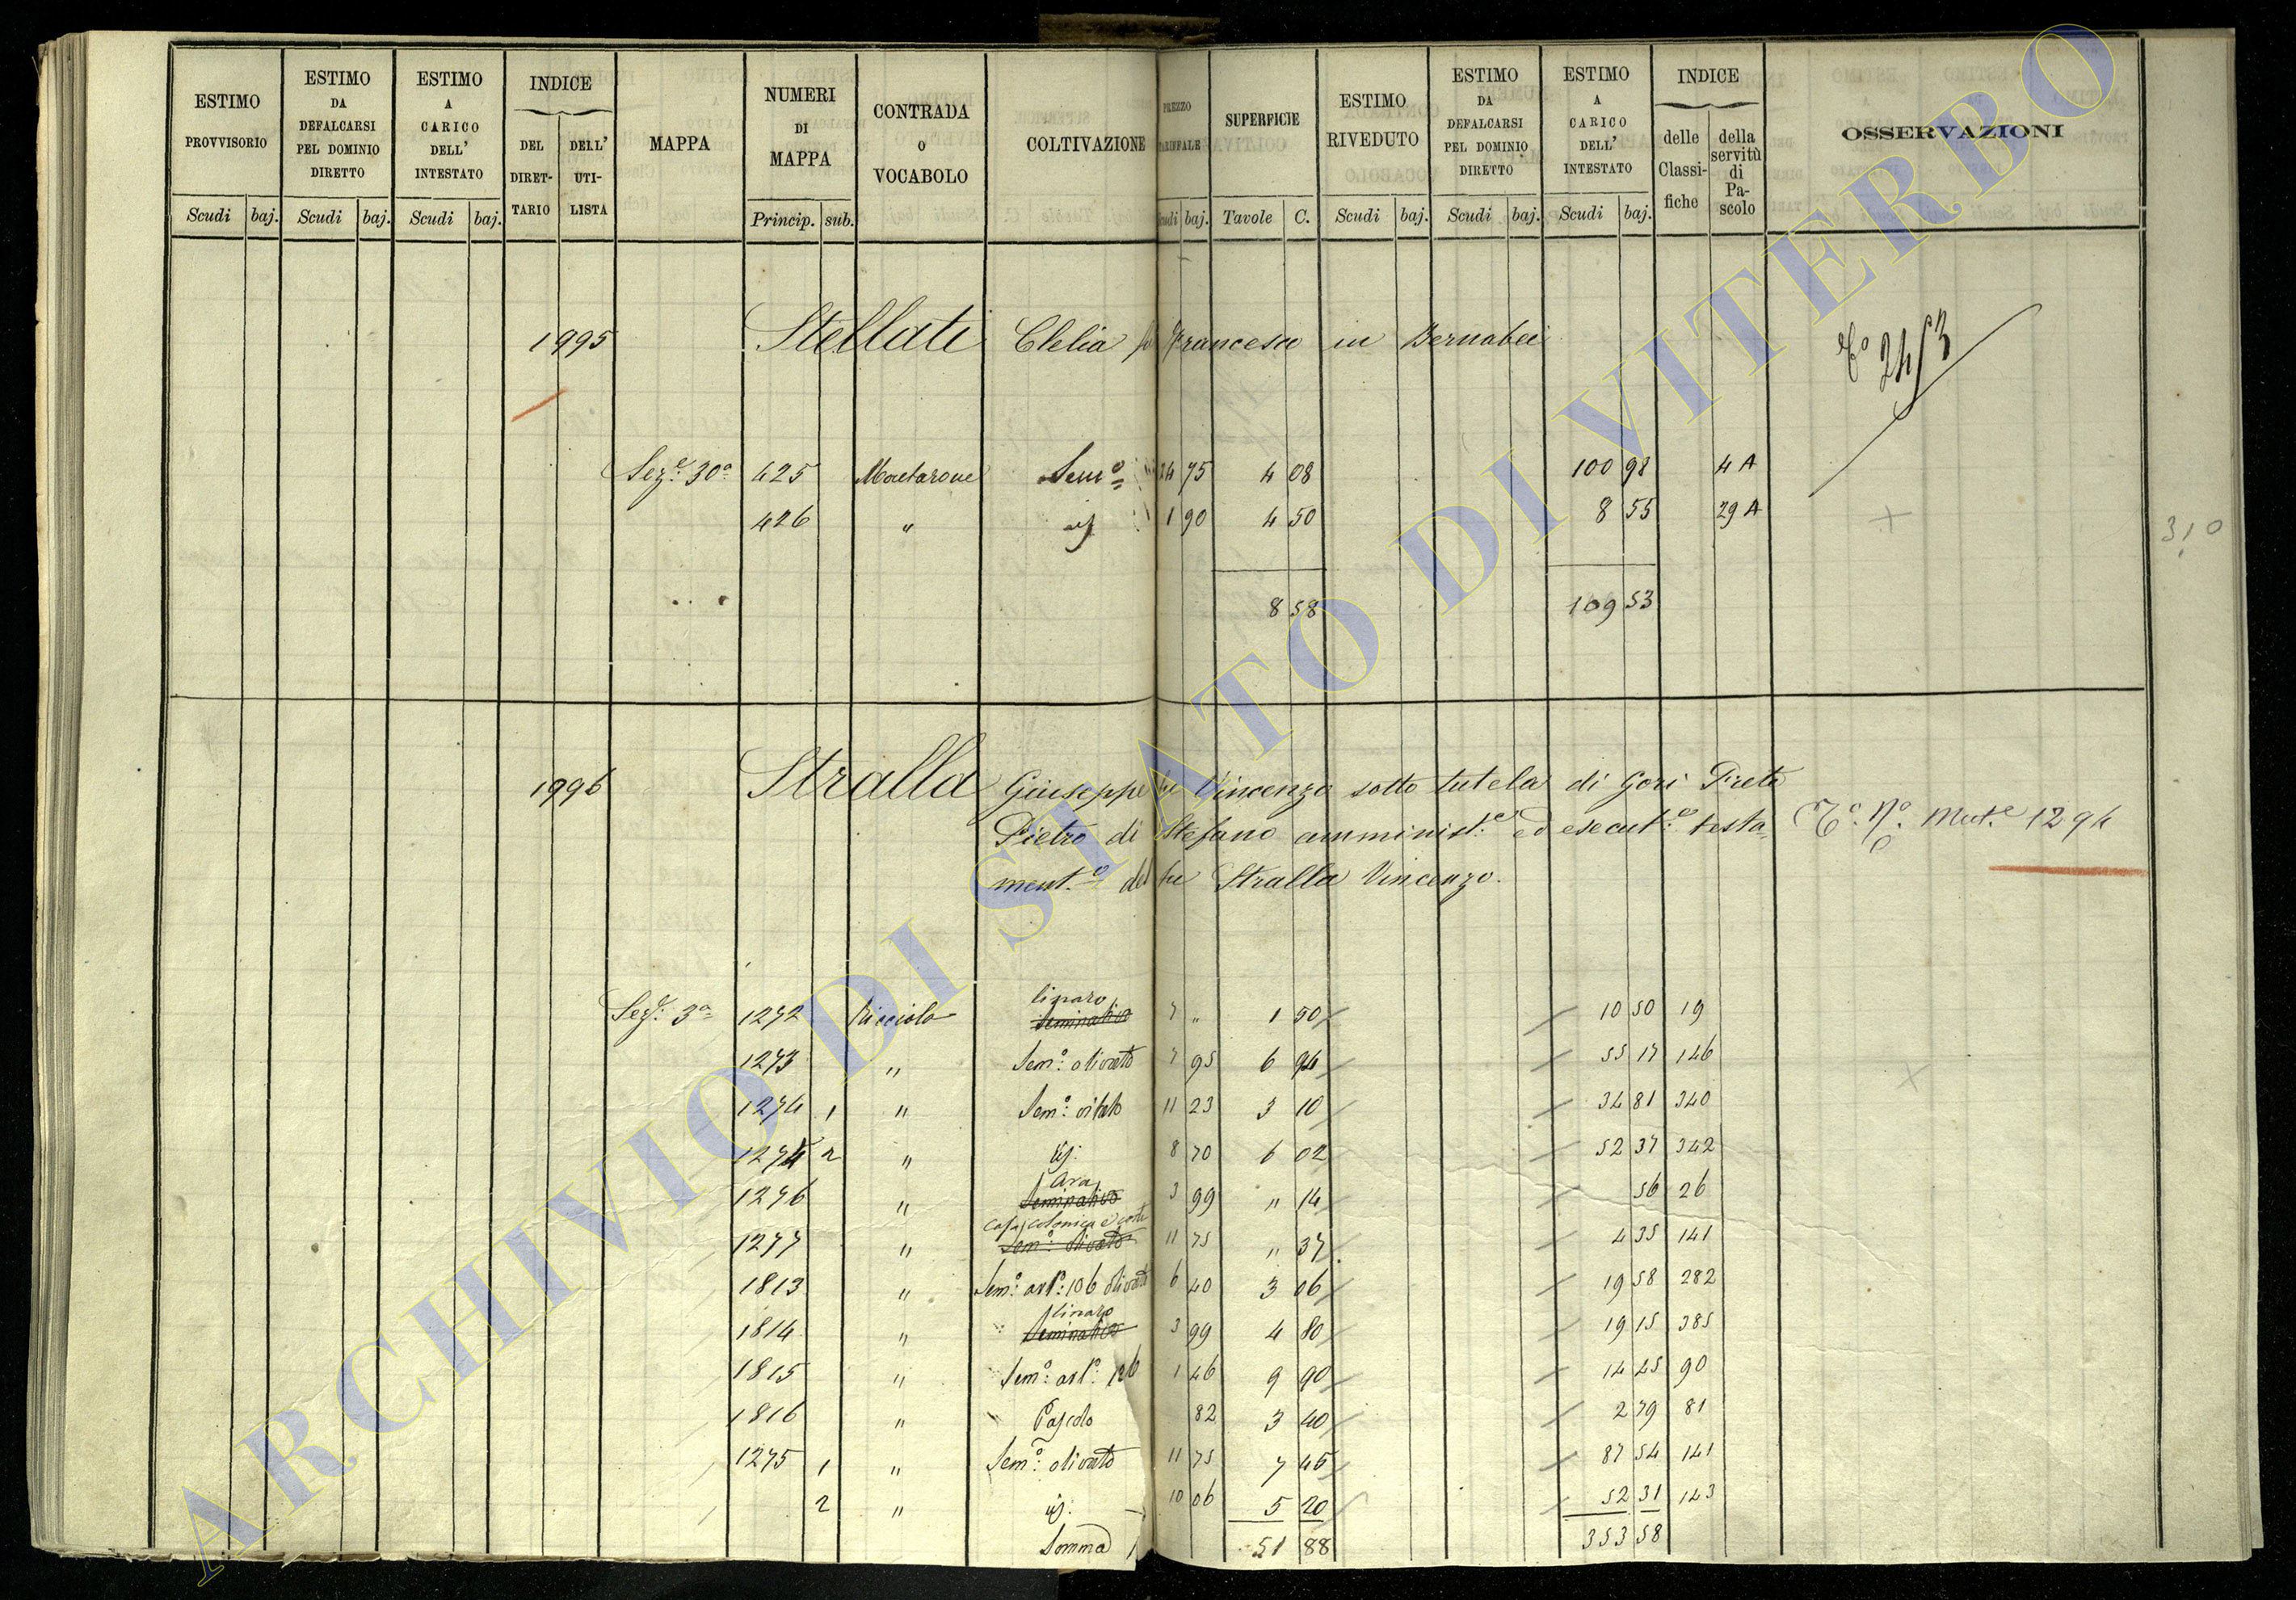 ESTIMO PROVVISORIO
Scudi baj.
ESTIMO DA DEFALCARSI PEL DOMINIO DIRETTO
Scudi baj.
ESTIMO A CARICO DELL' INTESTATO
Scudi baj.
INDICE
DEL DIRET- TARIO
DELL' UTI- LISTA
MAPPA
NUMERI DI MAPPA
Princip. sub.
CONTRADA O VOCABOLO
COLTIVAZIONE
PREZZO
baj.
SUPERFICIE
Tavole C.
ESTIMO RIVEDUTO
Scudi baj.
ESTIMO DA DEFALCARSI PEL DOMINIO DIRETTO
Scudi baj.
ESTIMO A CARICO DELL' INTESTATO
Scudi baj.
INDICE
delle Classi- fiche
della servitù di Pa- scolo
OSSERVAZIONI
1995 Stellati Clelia fu Francesco in Bernabei
Sez.e 30a 425 Montarone Sem.o 24 75 4 08 100 98 4 A
426 " id 1 90 4 50 8 55 29 A
8 58 109 53
310
1996 Stralla Giuseppe fu Vincenzo sotto tutela di Gori Prete
Pietro di Stefano amminist.e ed esecut.e testa-
ment.o del fu Stralla Vincenzo.
T.o N.o Mut.e 1294
Sez.e 3a 1272 Ricciola linaro seminativo 7 " 1 50 10 50 19
1273 " Sem.o olivato 7 95 6 94 55 17 146
1274 1 " Sem.o vitato 11 23 3 10 34 81 340
1274 2 " id. 8 70 6 02 52 37 342
1276 " Ara seminativo 3 99 " 14 56 26
1277 " casa colonica e corte Sem.o olivato 11 75 " 37 4 35 141
1813 " Sem.o art.o 106 olivato 6 40 3 06 19 58 282
1814 " linaro seminativo 3 99 4 80 19 15 385
1815 " Sem.o art.o 1 46 9 90 14 45 90
1816 " Pascolo 82 3 40 2 79 81
1275 1 " Sem.o olivato 11 75 7 45 87 54 141
2 " id. 10 06 5 20 52 31 143
Somma 51 88 353 58
ARCHIVIO DI STATO DI VITERBO